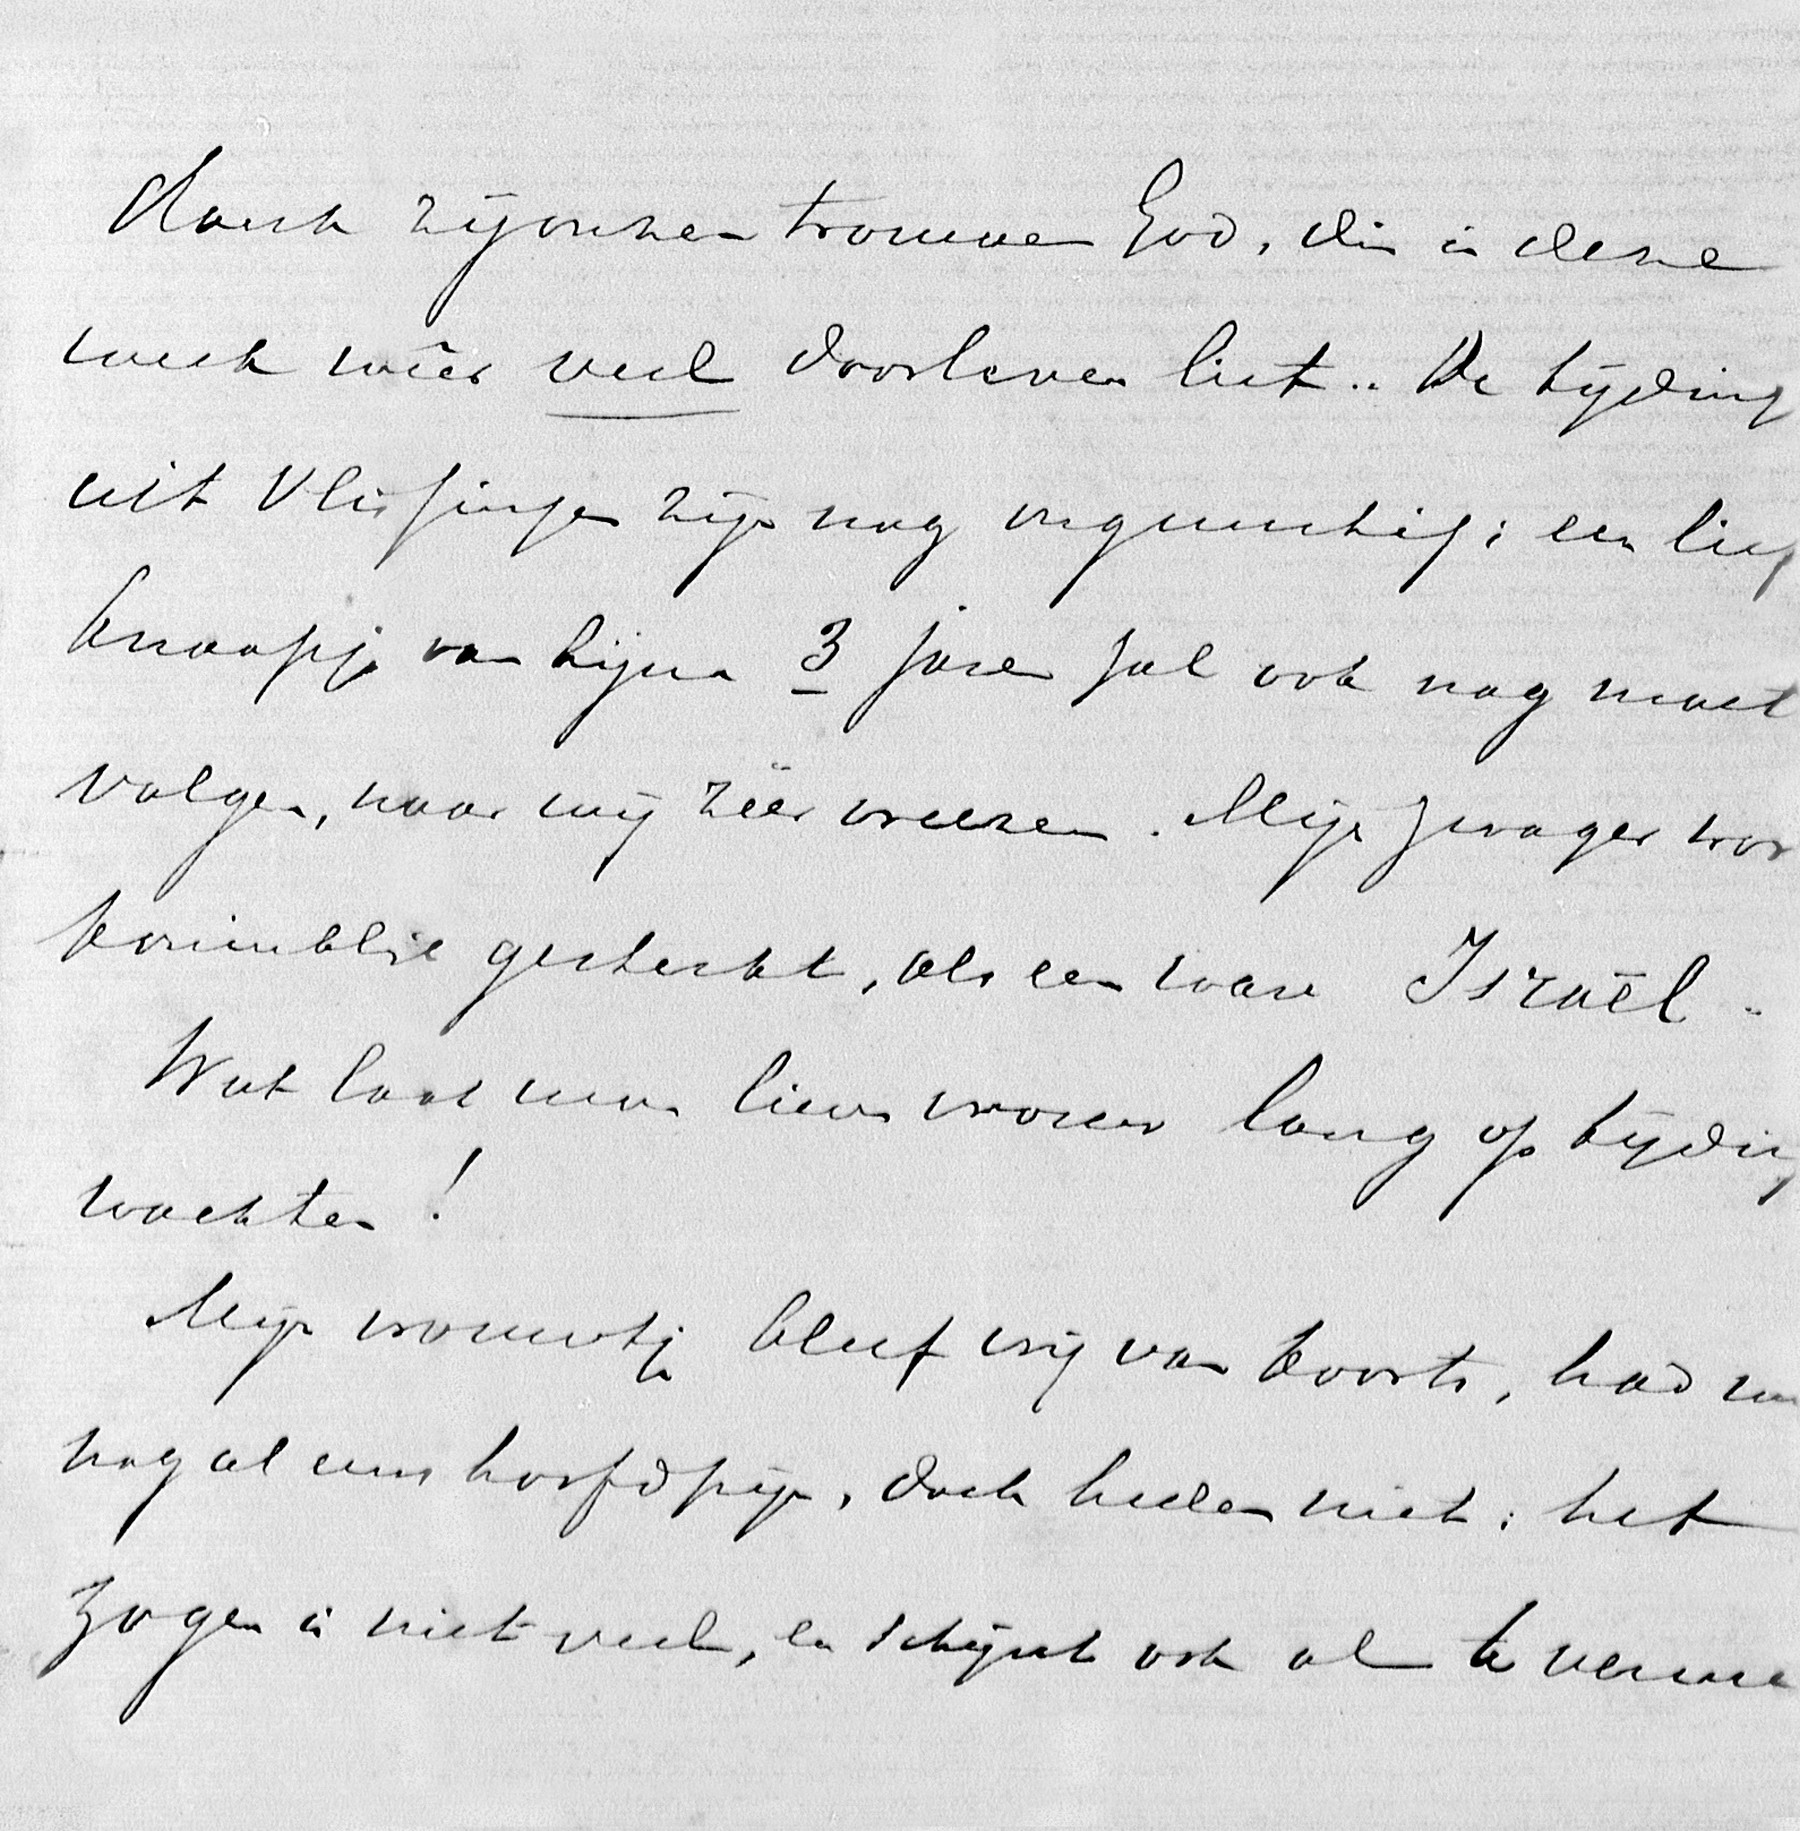 Dank zij onzen trouwen God, die in deze
week wéér veel doorleven liet.. De tijding
uit Vlissingen zijn nog ongunstig; een lief
knaapje van bijna 3 jaren zal ook nog moet
volgen, naar wij zéér vreezen. Mijn zwager wor
geschokt, als een ware Israël.
Wat laat men lieve vrouw lang op tijding
wachten!
Mijn vrouwtje bleef vrij van koorts, had nu
nog al eens hoofdpijn, doch heden niet; het
zogen is niet veel, en schijnt ook al te vermi